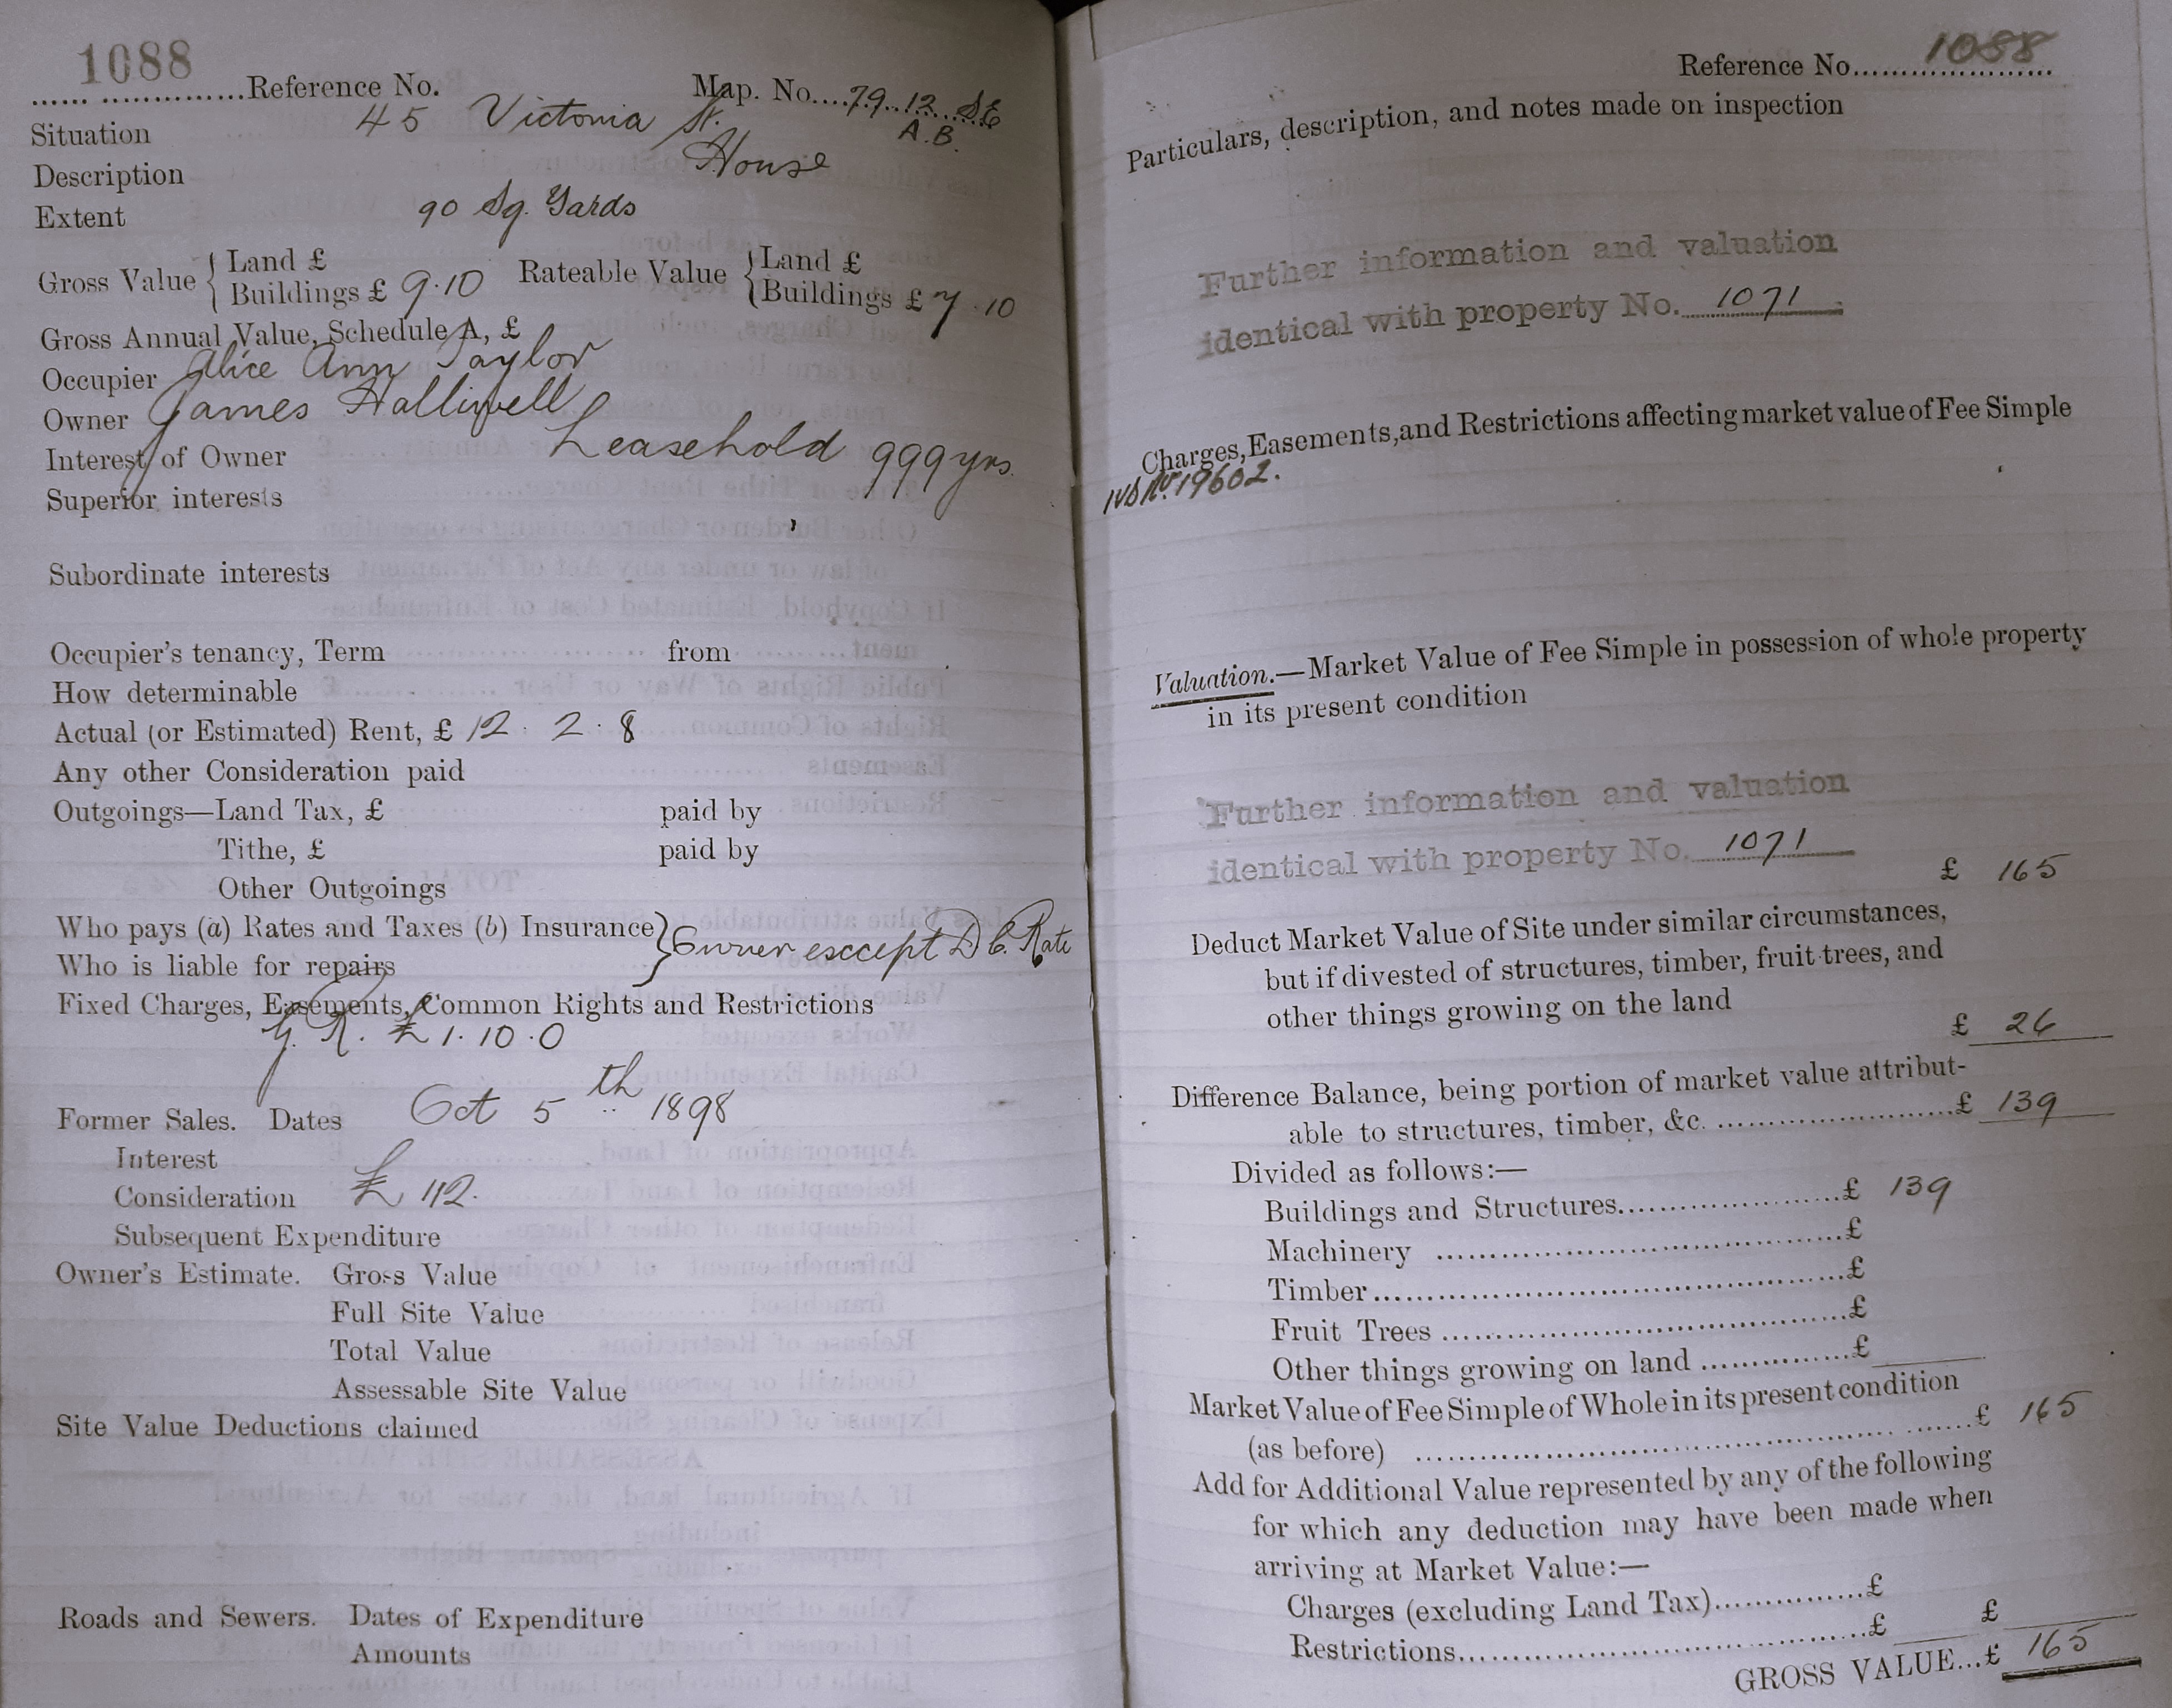 1088
Reference No. Map. No. 79.12 SE
Situation 45 Victoria St. A.B.
Description House
Extent 90 Sq. Yards
Gross Value { Land £ Rateable Value { Land £
Buildings £ 9.10 Buildings £ 7.10
Gross Annual Value, Schedule A, £
Occupier Alice Ann Taylor
Owner James Halliwell
Interest of Owner Leasehold 999 yrs.
Superior interests
Subordinate interests
Occupier's tenancy, Term from
How determinable
Actual (or Estimated) Rent, £ 12. 2. 8
Any other Consideration paid
Outgoings—Land Tax, £ paid by
Tithe, £ paid by
Other Outgoings
Who pays (a) Rates and Taxes (b) Insurance } Owner esccept D C. Rate
Who is liable for repairs
Fixed Charges, Easements, Common Rights and Restrictions
G. R. £1.10.0
Former Sales. Dates Oct 5th 1898
Interest
Consideration £112.
Subsequent Expenditure
Owner's Estimate. Gross Value
Full Site Value
Total Value
Assessable Site Value
Site Value Deductions claimed
Roads and Sewers. Dates of Expenditure
Amounts
Reference No. 1088
Particulars, description, and notes made on inspection
Further information and valuation
identical with property No. 1071
Charges, Easements, and Restrictions affecting market value of Fee Simple
IVS No. 19602.
Valuation.—Market Value of Fee Simple in possession of whole property
in its present condition
Further information and valuation
identical with property No. 1071
£ 165
Deduct Market Value of Site under similar circumstances,
but if divested of structures, timber, fruit trees, and
other things growing on the land
£ 26
Difference Balance, being portion of market value attribut-
able to structures, timber, &c. £ 139
Divided as follows:—
Buildings and Structures £ 139
Machinery £
Timber £
Fruit Trees £
Other things growing on land £
Market Value of Fee Simple of Whole in its present condition
(as before) £ 165
Add for Additional Value represented by any of the following
for which any deduction may have been made when
arriving at Market Value:—
Charges (excluding Land Tax) £
Restrictions £ £
GROSS VALUE...£ 165